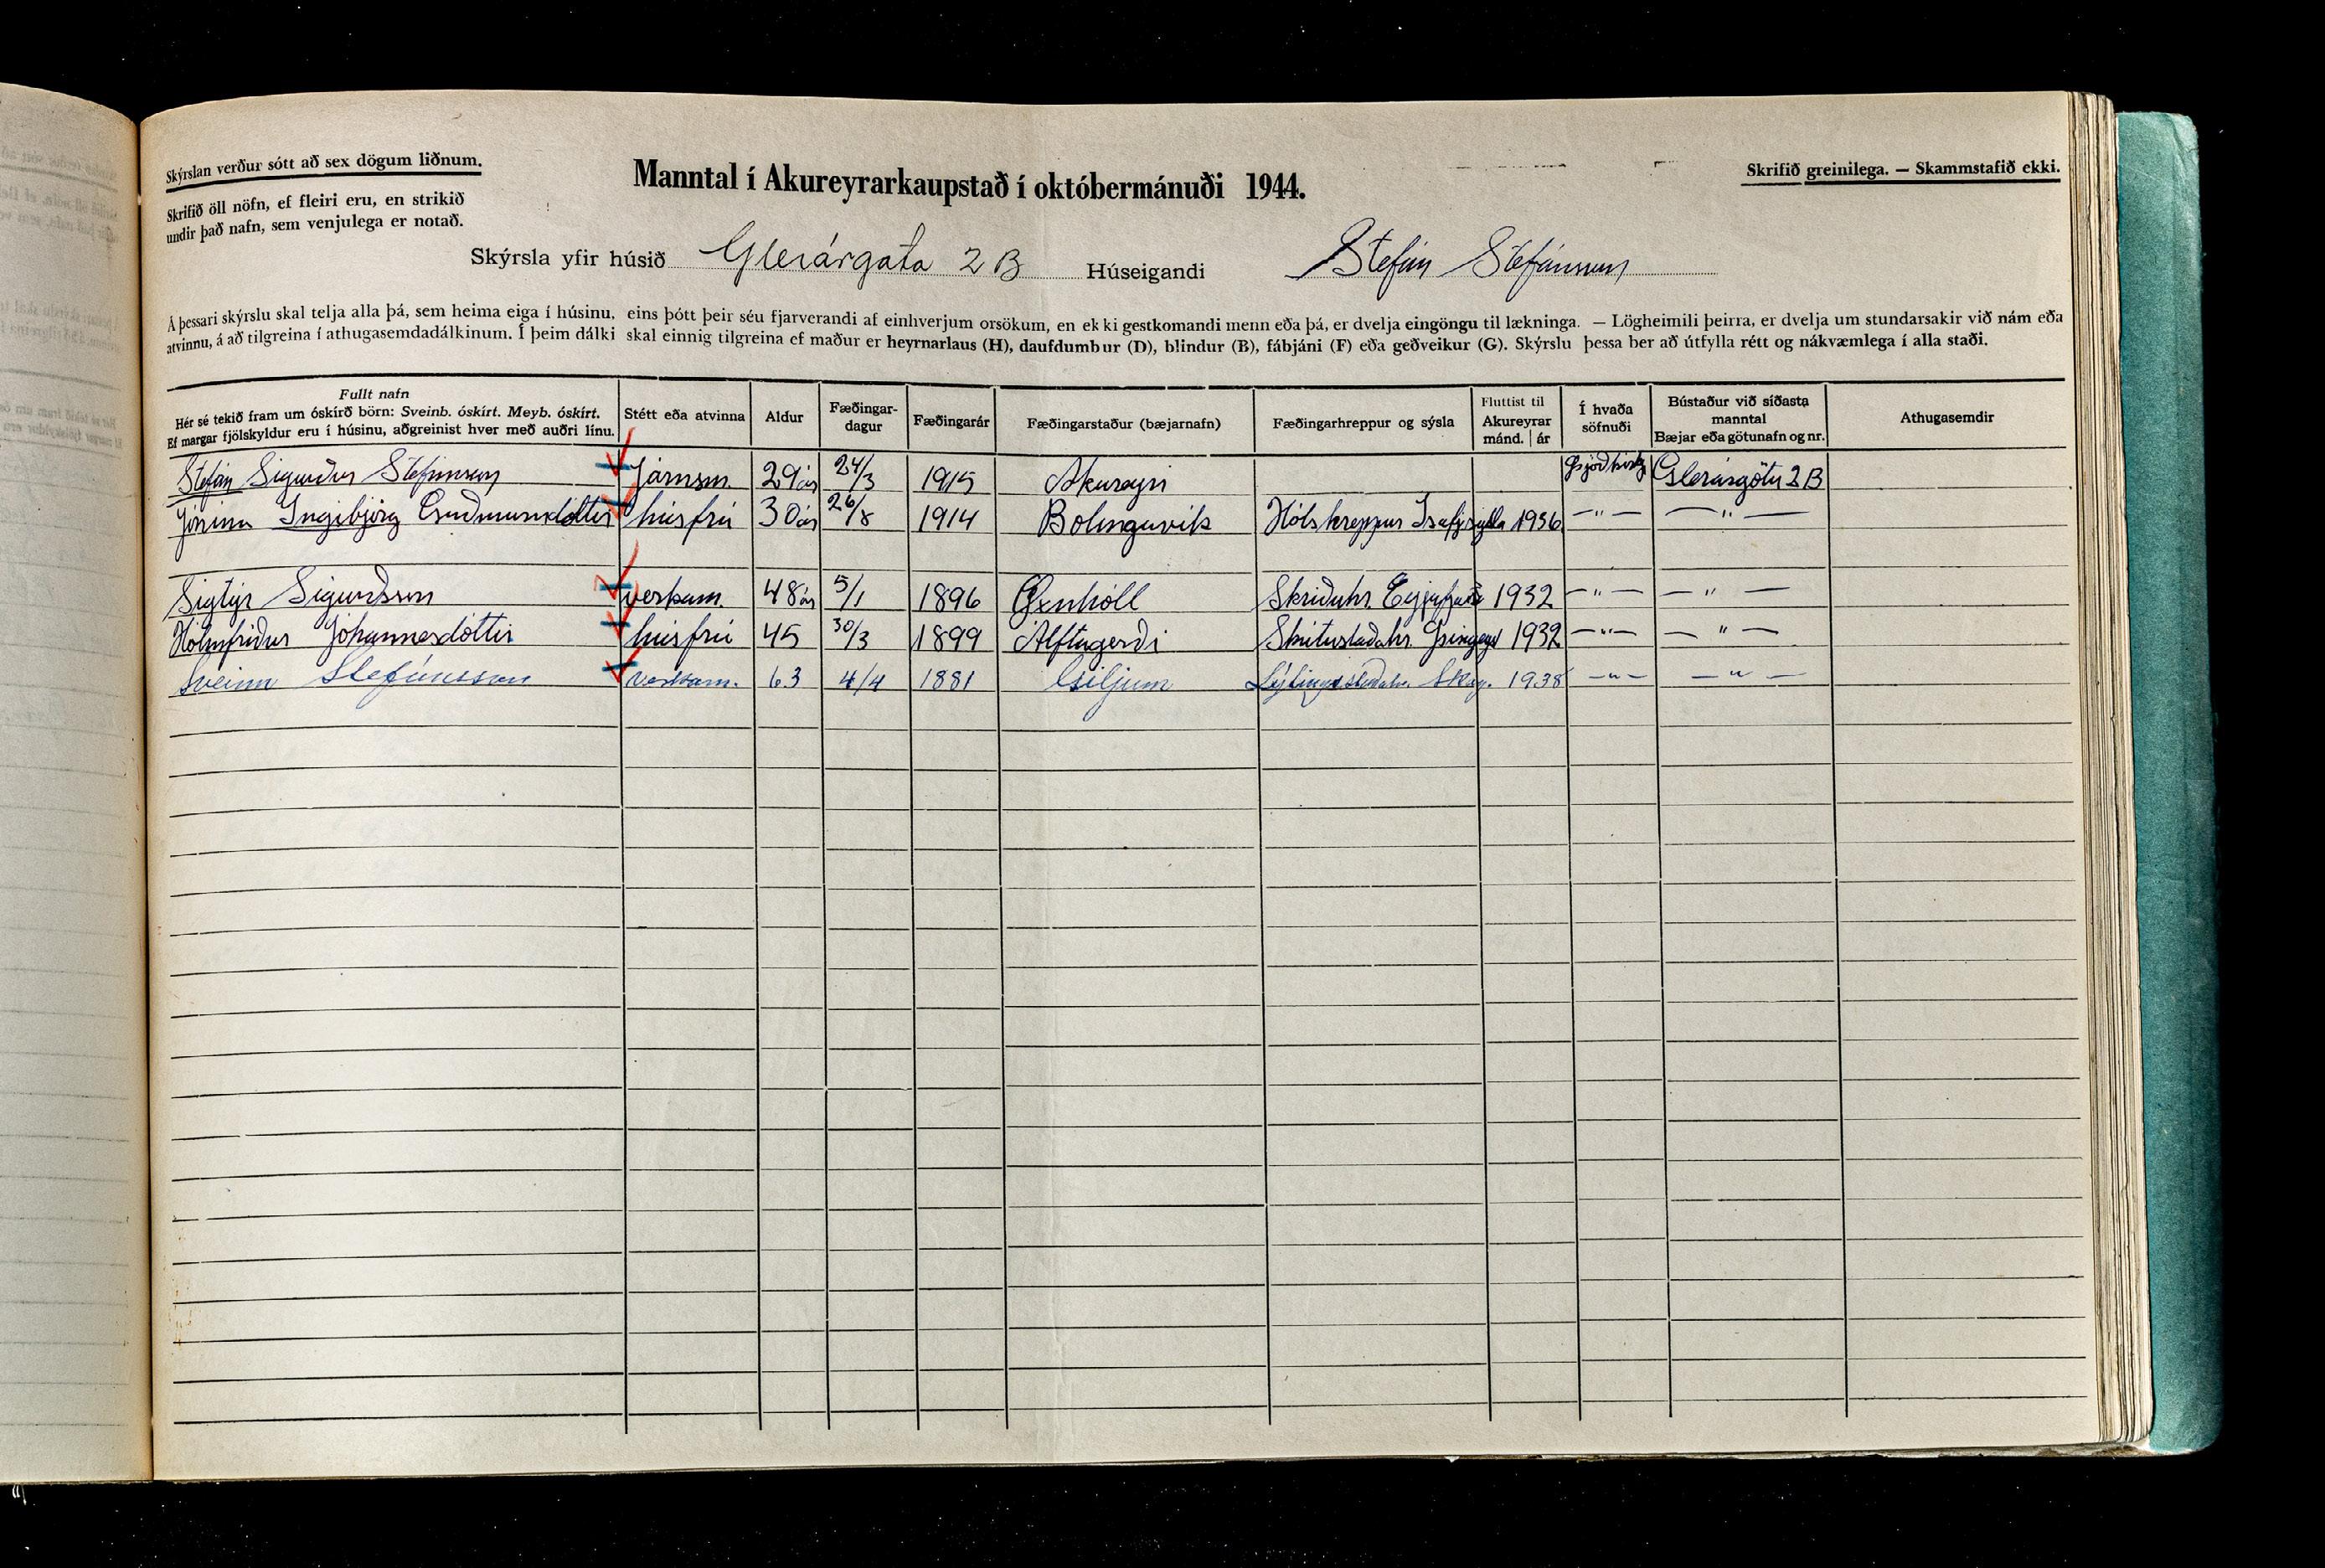 Skýrslan verður sótt að sex dögum liðnum.
Skrifið öll nöfn, ef fleiri eru, en strikið
undir það nafn, sem venjulega er notað.
Manntal í Akureyrarkaupstað í októbermánuði 1944.
Skrifið greinilega. — Skammstafið ekki.
Skýrsla yfir húsið Glerárgata 2B Húseigandi Stefán Stefánsson
Á þessari skýrslu skal telja alla þá, sem heima eiga í húsinu, eins þótt þeir séu fjarverandi af einhverjum orsökum, en ekki gestkomandi menn eða þá, er dvelja eingöngu til lækninga. — Lögheimili þeirra, er dvelja um stundarsakir við nám eða
atvinnu, á að tilgreina í athugasemdadálkinum. Í þeim dálki skal einnig tilgreina ef maður er heyrnarlaus (H), daufdumbur (D), blindur (B), fábjáni (F) eða geðveikur (G). Skýrslu þessa ber að útfylla rétt og nákvæmlega í alla staði.
Fullt nafn
Hér sé tekið fram um óskírð börn: Sveinb. óskírt. Meyb. óskírt.
Ef margar fjölskyldur eru í húsinu, aðgreinist hver með auðri línu.
Stétt eða atvinna
Aldur
Fæðingar-
dagur
Fæðingarár
Fæðingarstaður (bæjarnafn)
Fæðingarhreppur og sýsla
Fluttist til
Akureyrar
mánd. | ár
Í hvaða
söfnuði
Bústaður við síðasta
manntal
Bæjar eða götunafn og nr.
Athugasemdir
Stefán Sigurður Stefánsson Járnsm. 29 ár 24/3 1915 Akureyri Þjóðkirkj Glerárgötu 2B
Jónína Ingibjörg Guðmundsdóttir húsfrú 30 ár 26/8 1914 Bolungavík Hólshreppur Ísafj.sýsla 1936 —"— —"—
Sigtýr Sigurðsson verkam. 48 ár 5/1 1896 Skriðuhr. Eyjafjarð 1932 —"— —"—
Hólmfríður Jóhannesdóttir húsfrú 45 30/3 1899 Álftagerði Skútustaðahr. Þingeyj 1932 —"— —"—
Sveinn Stefánsson verkam. 63 4/4 1881 Giljum Lýtingsstaðahr. Skag. 1938 —"— —"—